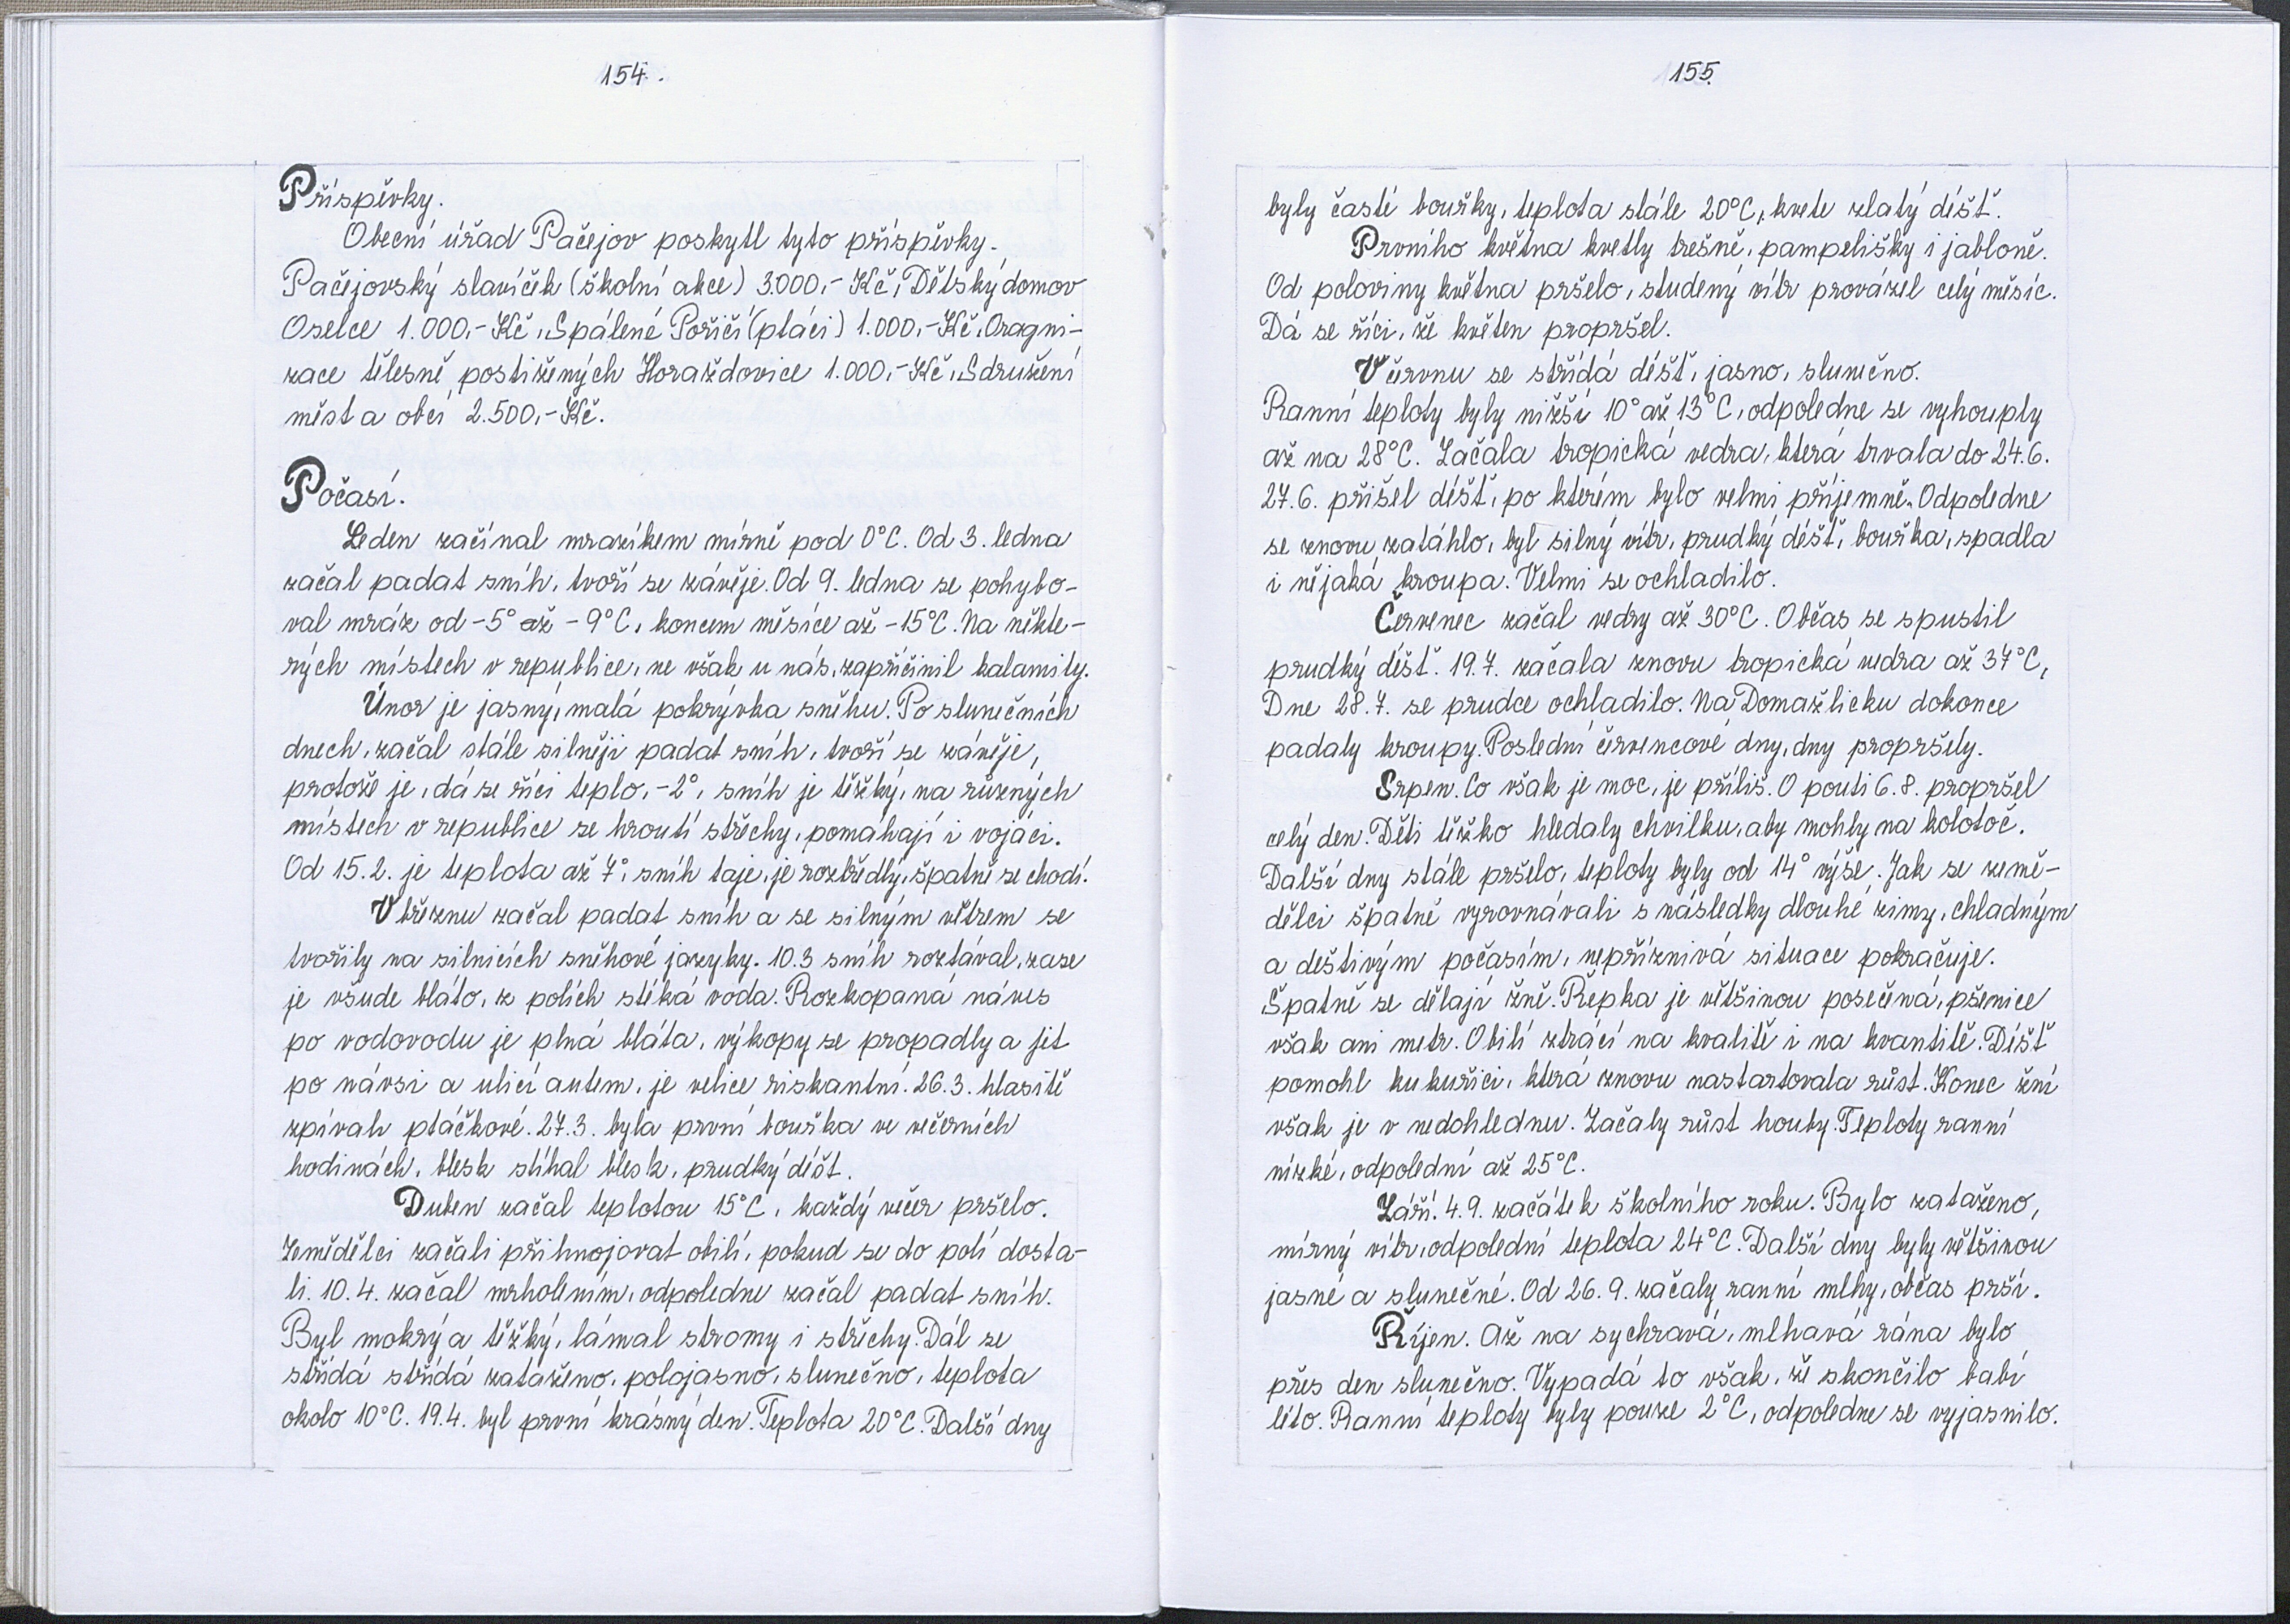 154.
Příspěvky.
Obecní úřad Pačejov poskytl tyto příspěvky.
Pačejovský slavíček (školní akce) 3.000,- Kč, Dětský domov
Oselce 1.000,- Kč, Spálené Poříčí (ptáci) 1.000,- Kč, Oragni-
zace tělesně postižených Horažďovice 1.000,- Kč, Sdružení
měst a obcí 2.500,- Kč.
Počasí.
Leden začínal mrazíkem mírně pod 0°C. Od 3. ledna
začal padat sníh, tvoří se závěje. Od 9. ledna se pohybo-
val mráz od -5° až -9°C, koncem měsíce až -15°C. Na někte-
rých místech v republice, ne však u nás, zapříčinil kalamity.
Únor je jasný, malá pokrývka sněhu. Po slunečních
dnech, začal stále silněji padat sníh, tvoří se závěje,
protože je, dá se říci teplo, -2°, sníh je těžký, na různých
místech v republice se hroutí střechy, pomáhají i vojáci.
Od 15.2. je teplota až 7°, sníh taje, je rozbředlý, špatně se chodí.
V březnu začal padat sníh a se silným větrem se
tvořily na silnicích sněhové jazyky. 10.3 sníh roztával, zase
je všude bláto, z polích stéká voda. Rozkopaná náves
po vodovodu je plná bláta, výkopy se propadly a jet
po návsi a ulicí autem, je velice riskantní. 26.3. hlasitě
zpívali ptáčkové. 27.3. byla první bouřka ve večerních
hodinách, blesk stíhal blesk, prudký déšt.
Duben začal teplotou 15°C, každý večer pršelo.
Zemědělci začali přihnojovat obilí, pokud se do polí dosta-
li. 10.4. začal mrholením, odpoledne začal padat sníh.
Byl mokrý a těžký, lámal stromy i střechy. Dál se
střídá střídá zataženo, polojasno, slunečno, teplota
okolo 10°C. 19.4. byl první krásný den. Teplota 20°C. Další dny
155.
byly časté bouřky, teplota stále 20°C, kvete zlatý déšť.
Prvního května kvetly třešně, pampelišky i jabloně.
Od poloviny května pršelo, studený vítr provázel celý měsíc.
Dá se říci, že květen propršel.
V červnu se střídá déšť, jasno, slunečno.
Ranní teploty byly nižší 10° až 13°C, odpoledne se vyhouply
až na 28°C. Začala tropická vedra, která trvala do 24.6.
27.6. přišel déšť, po kterém bylo velmi příjemně. Odpoledne
se znovu zatáhlo, byl silný vítr, prudký déšť, bouřka, spadla
i nějaká kroupa. Velmi se ochladilo.
Červenec začal vedry až 30°C. Občas se spustil
prudký déšť. 19.7. začala znovu tropická vedra až 37°C,
Dne 28.7. se prudce ochladilo. Na Domažlicku dokonce
padaly kroupy. Poslední červencové dny, dny propršely.
Srpen. Co však je moc, je příliš. O pouti 6.8. propršel
celý den. Děti těžko hledaly chvilku, aby mohly na kolotoč.
Další dny stále pršelo, teploty byly od 14° výše. Jak se země-
dělci špatně vyrovnávali s následky dlouhé zimy, chladným
a deštivým počasím, nepříznivá situace pokračuje.
Špatně se dělají žně. Řepka je většinou posečená, pšenice
však ani metr. Obilí ztrácí na kvalitě i na kvantitě. Déšť
pomohl kukuřici, která znovu nastartovala růst. Konec žní
však je v nedohlednu. Začaly růst houby. Teploty ranní
nízké, odpolední až 25°C.
Září. 4.9. začátek školního roku. Bylo zataženo,
mírný vítr, odpolední teplota 24°C. Další dny byly většinou
jasné a slunečné. Od 26.9. začaly ranní mlhy, občas prší.
Říjen. Až na sychravá, mlhavá rána bylo
přes den slunečno. Vypadá to však, že skončilo babí
léto. Ranní teploty byly pouze 2°C, odpoledne se vyjasnilo.